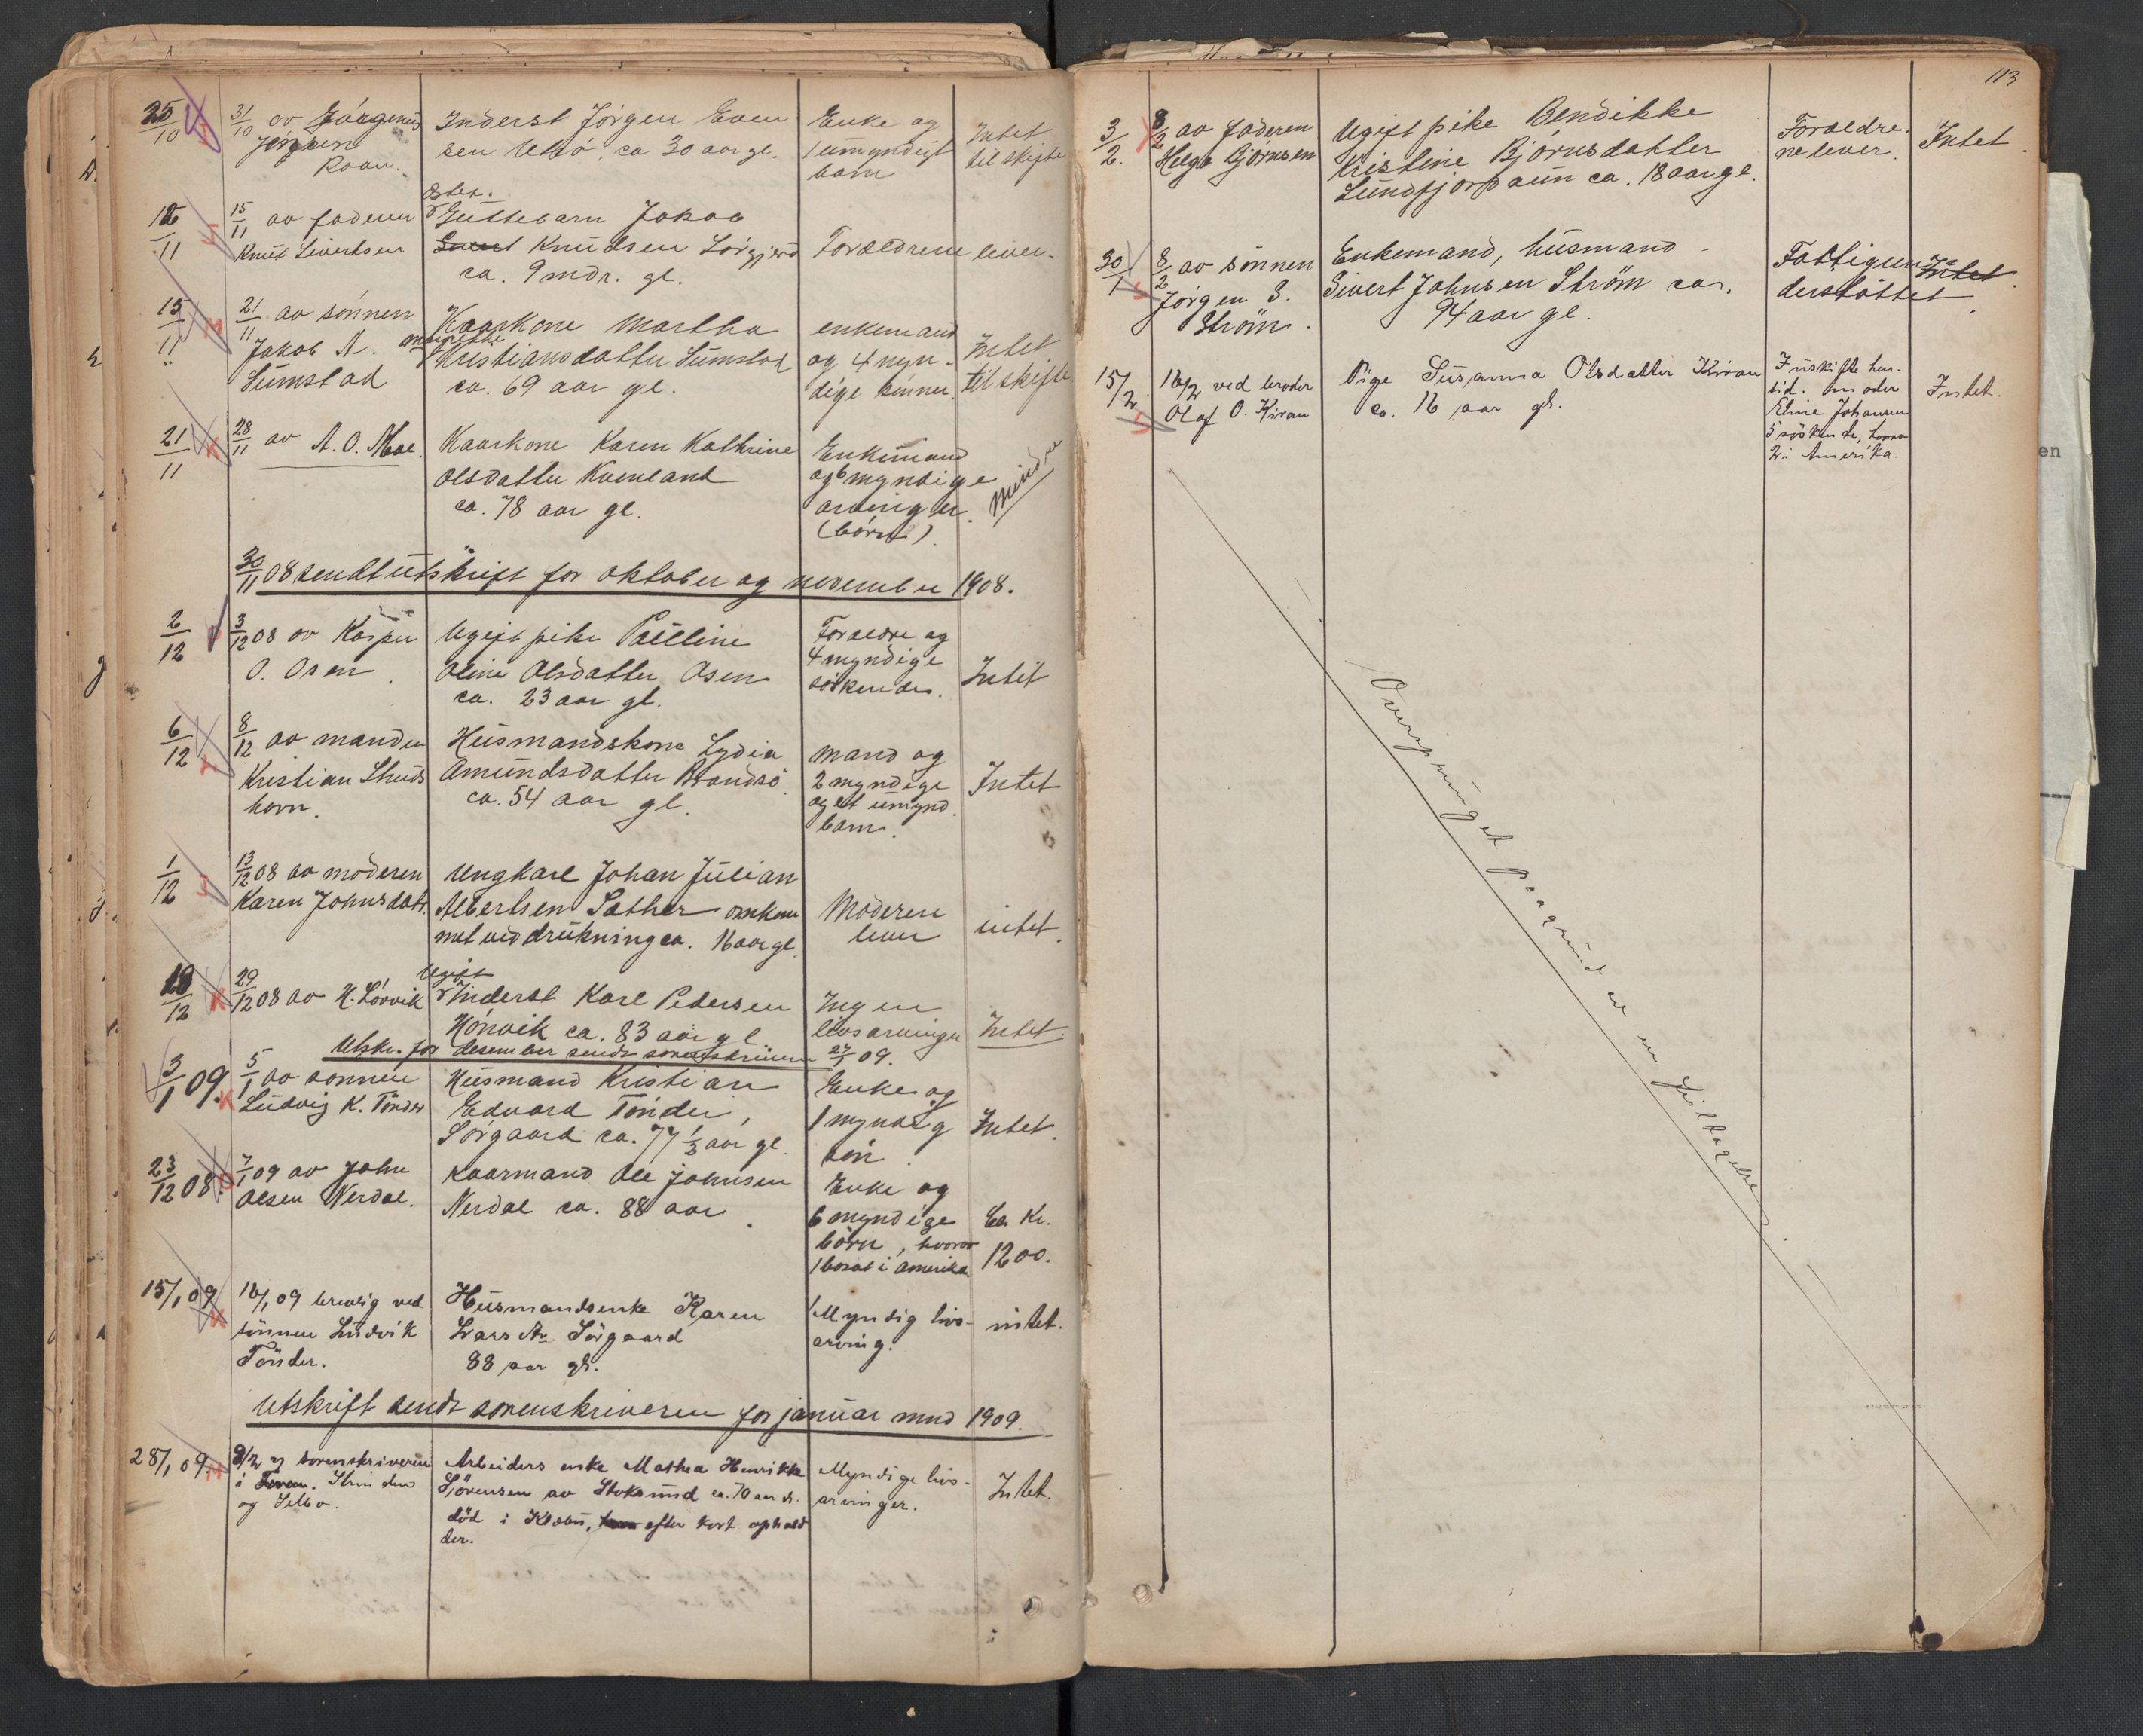 25/10 31/10 av Jørgen Inderst Jørgen Even Enke og Intet
Jørgen sen Utsø, ca 30 aar gl. 1 umyndigt til skifte
Roan. barn
12/11 15/11 av faderen Guttebarn Jakob
Knut Sivertsen Sivert Knudsen Sørgjerd Forældrene lever.
ca. 9 mdr. gl.
15/11 21/11 av sønnen Kaarkone Martha enkemand Intet
Jakob A. Kristiansdatter Sumstad og 4 myn- til skifte
Sumstad ca. 69 aar gl. dige sønner.
21/11 28/11 av A. O. Moe. Kaarkone Karen Kathrine Enkemand Mindre
Olsdatter Kvenland og 6 myndige
ca. 78 aar gl. arvinger
(børn).
30/11 08 sendt utskrift for oktober og november 1908.
2/12 3/12 08 av Kasper Ugift pike Pauline Forældre og
O. Osen. Oline Olsdatter Osen 4 myndige Intet
ca. 23 aar gl. søskende.
6/12 8/12 av manden Husmandskone Lydia mand og
Kristian Amundsdatter Brandsø 2 myndige Intet
horn. ca. 54 aar gl. og et umynd.
barn.
1/12 13/12 08 av moderen Ungkarl Johan Julian
Karen Johnsdatr. Albertsen Sæther omkom Moderen intet.
met ved drukning ca. 16 aar gl. lever
Ugift
18/12 29/12 08 av H. Lørvik Inderst Karl Pedersen Ingen
Hønvik ca. 83 aar gl. livsarvinger Intet.
Utskr. for desember sendt sorenskriveren 27/1 09.
3/1 09. 5/1 av sønnen Husmand Kristian Enke og
Ludvig K. Tønder Edvard Tønder, 1 myndig Intet.
Sørgaard ca. 77 1/2 aar gl. søn
23/12 08. 7/1 09 av John Kaarmand Ole Johnsen Enke og
Olsen Nerdal. Nerdal ca. 88 aar. 6 myndige Ca. Kr.
børn, hvorav 1200.
1 bosat i Amerika.
15/1 09 16/1 09 brevlig ved Husmandsenke Karen 1 Myndig livs- intet.
sønnen Ludvik Larsdtr. Sørgaard arving.
Tønder. 88 aar gl.
Utskrift sendt sorenskriveren for januar mnd 1909.
28/1 09. 9/2 sorenskriveren Arbeiders enke Mathea Henrikke Myndige livs-
i Strinden Sjørensen av Stoksund ca. 70 aar gl. arvinger. Intet.
og Selbo. død i Klæbu, efter kort ophold
der.
113
3/2. 8/2 av faderen Ugift pike Bendikke Forældre-
Helge Bjørnsen Kristine Bjørnsdatter ne lever. Intet.
Sundfjordaun ca. 18 aar gl.
30/1 8/2 av sønnen Enkemand, husmand Fattigun- Intet.
Jørgen S. Sivert Johnsen Strøm ca. derstøttet
Strøm. 94 aar gl.
15/2 16/2 ved broder Pige Susanna Olsdatter Kiran I uskifte hen-
Olaf O. Kiran ca. 16 aar gl. sid. moder Intet.
Eline Johansen
5 søskende, hvorav
2 i Amerika.
Oversprunget paagrund av en feiltagelse.